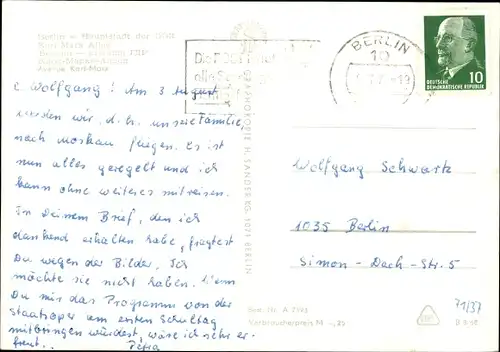 Berlin - Hauptstadt der DDR
Karl Marx Allee
Avenue Karl-Marx
BERLIN
10
DEUTSCHE
DEMOKRATISCHE REPUBLIK
10
L. Wolfgang! Am 3. August
werden wir, d.h. unsere Familie,
nach Moskau fliegen. Es ist
nun alles geregelt und ich
kann ohne weiteres mitreisen.
In Deinem Brief, den ich
dankend erhalten habe, fragtest
Du wegen der Bilder. Ich
möchte sie nicht haben. Wenn
Du mir das Programm von der
Staatsoper am ersten Schultag
mitbringen würdest, wäre ich sehr er-
freut. Petra
GRAPHOKOPIE H. SANDER KG, 1071 BERLIN
Wolfgang Schwartz
1035 Berlin
Simon-Dach-Str. 5
Verbraucherpreis M
71/37